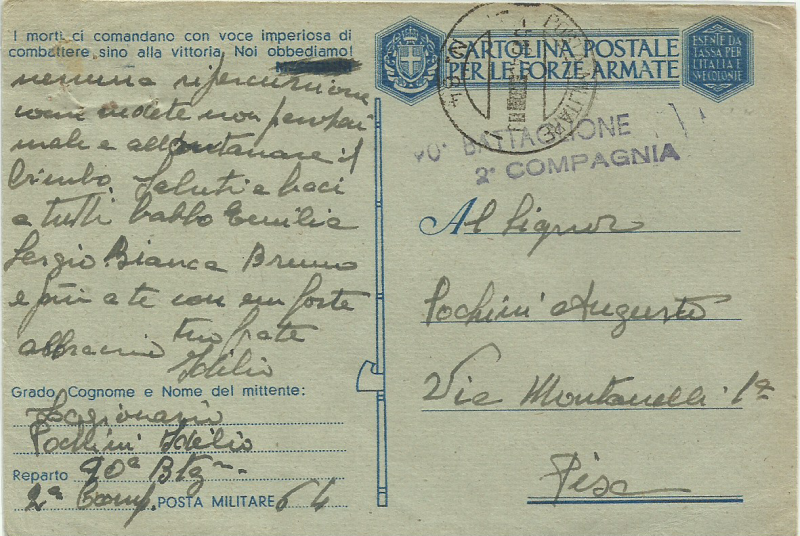 I morti ci comandano con voce imperiosa di
combattere sino alla vittoria. Noi obbediamo!
nessuna ripercussione
come vedete non però più
male e allontanare il
bimbo. Saluti e baci
a tutti babbo Emilia
Sergio Bianca Bruno
e più a te con un forte
abbraccio tuo frate
Idilio
Grado, Cognome e Nome del mittente:
Legionario
Pochini Idilio
Reparto 90ª Btg
2ª Comp. POSTA MILITARE 64
CARTOLINA POSTALE
PER LE FORZE ARMATE
ESENTE DA
TASSA PER
L'ITALIA E
SVE COLONIE
POSTA MILITARE
90° BATTAGLIONE
2ª COMPAGNIA
Al Signor
Pochini Augusto
Via Montanelli 1ª
Pisa